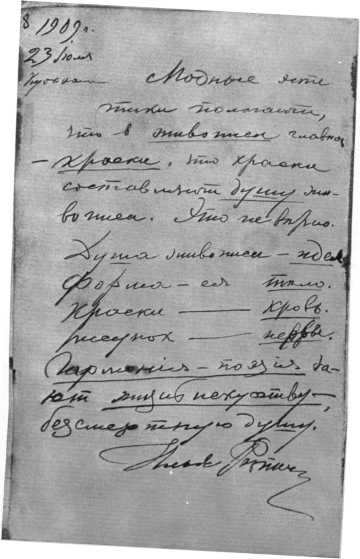 8 1909 г.
23 Іюля
Куоккала
Модные эсте
тики полагаютъ,
что в живописи главное
– краски, что краски
составляютъ душу жи-
вописи. Это не вѣрно.
Душа живописи – идея
Форма – ея тѣло.
Краски — кровь.
рисунок — нервы.
Гармонія – поэзія да-
ют жизнь искусству –,
безсмертную душу.
Илья Рѣпин